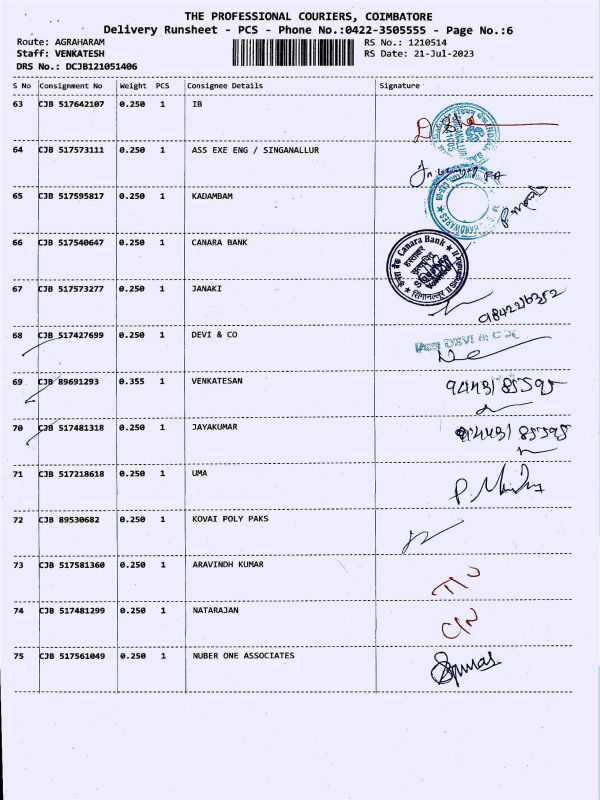 THE PROFESSIONAL COURIERS, COIMBATORE
Delivery Runsheet - PCS - Phone No.:0422-3505555 - Page No.:6
Route: AGRAHARAM RS No.: 1210514
Staff: VENKATESH RS Date: 21-Jul-2023
DRS No.: DCJB121051406
S No Consignment No Weight PCS Consignee Details Signature
63 CJB 517642107 0.250 1 IB
64 CJB 517573111 0.250 1 ASS EXE ENG / SINGANALLUR
65 CJB 517595817 0.250 1 KADAMBAM
66 CJB 517540647 0.250 1 CANARA BANK
Canara Bank
67 CJB 517573277 0.250 1 JANAKI
68 CJB 517427699 0.250 1 DEVI & CO
DEVI & CO
69 CJB 89691293 0.355 1 VENKATESAN 9443185595
70 CJB 517481318 0.250 1 JAYAKUMAR 9443185595
71 CJB 517218618 0.250 1 UMA
72 CJB 89530682 0.250 1 KOVAI POLY PAKS
73 CJB 517581360 0.250 1 ARAVINDH KUMAR
74 CJB 517481299 0.250 1 NATARAJAN
75 CJB 517561049 0.250 1 NUBER ONE ASSOCIATES